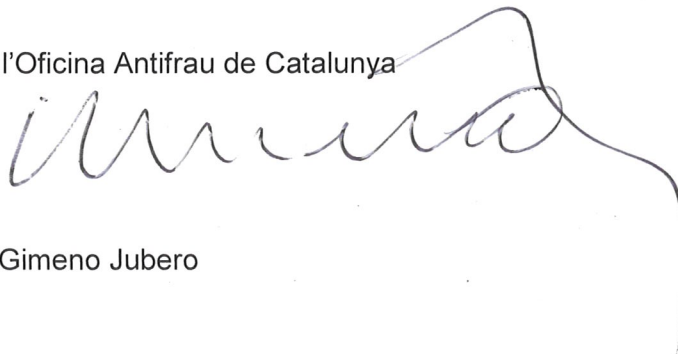 l'Oficina Antifrau de Catalunya
Gimeno Jubero